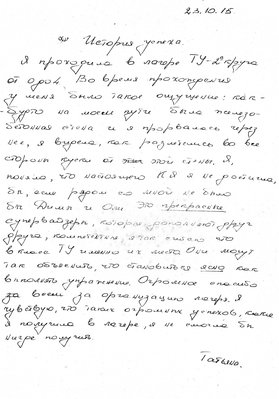 23.10.15
История успеха.
Я проходила в лагере ТУ-2 круга
от 0 до 4. Во время прохождения
у меня было такое ощущение: как-
будто на моем пути была железо-
бетонная стена и я прорвалась через
нее, я видела, как разлетелись во все
стороны куски от этой стены. Я
поняла, что настоящего КЯ я не достигла
бы, если рядом со мной не было
бы Димы и Оли. Это прекрасные
супервайзеры, которые дополняют друг
друга, компетентны, я так считаю что
в классе ТУ именно их место. Они могут
так объяснить, что становится ясно как
выполнять упражнение. Огромное спасибо
за всем за организацию лагеря. Я
чувствую, что таких огромных успехов, какие
я получила в лагере, я не смогла бы
нигде получить.
Татьяна.